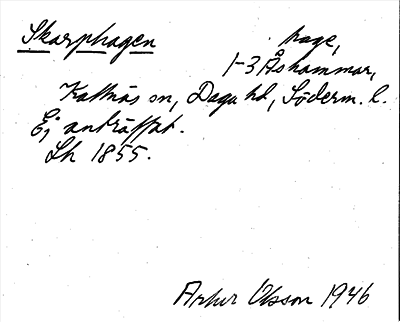 Skarphagen hage,
1-3 Åshammar,
Kattnäs sn, Daga hd, Söderm. l.
Ej anträffat.
Lh 1855.
Artur Olsson 1946